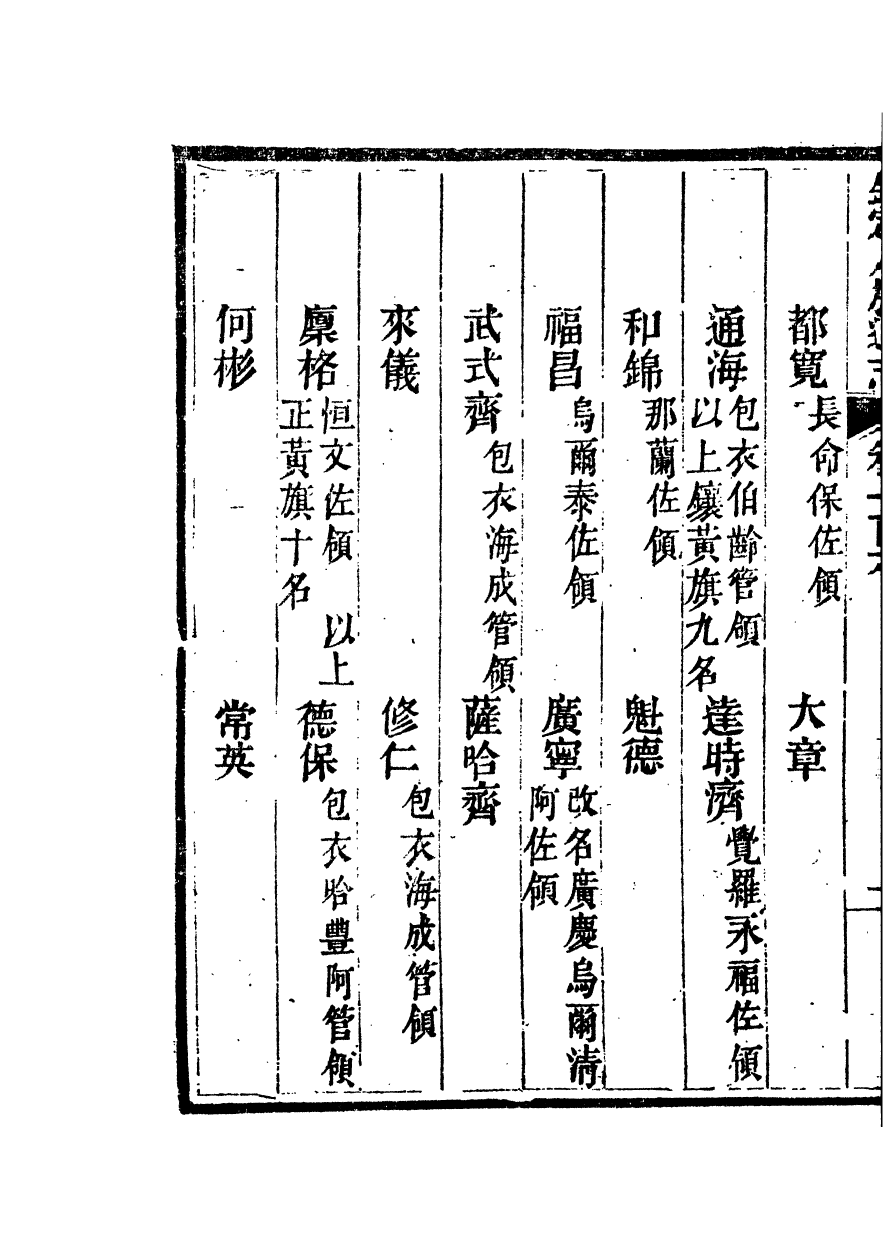 都寬 長命保佐領 大章
通海 包衣伯齡管領 以上鑲黃旗九名 達時濟 覺羅永福佐領
和錦 那蘭佐領 魁德
福昌 烏爾泰佐領 廣寧 改名廣慶烏爾清阿佐領
武式齊 包衣海成管領 薩哈齊
來儀 修仁 包衣海成管領
稟格 恒文佐領 以上正黃旗十名 德保 包衣哈豐阿管領
何彬 常英